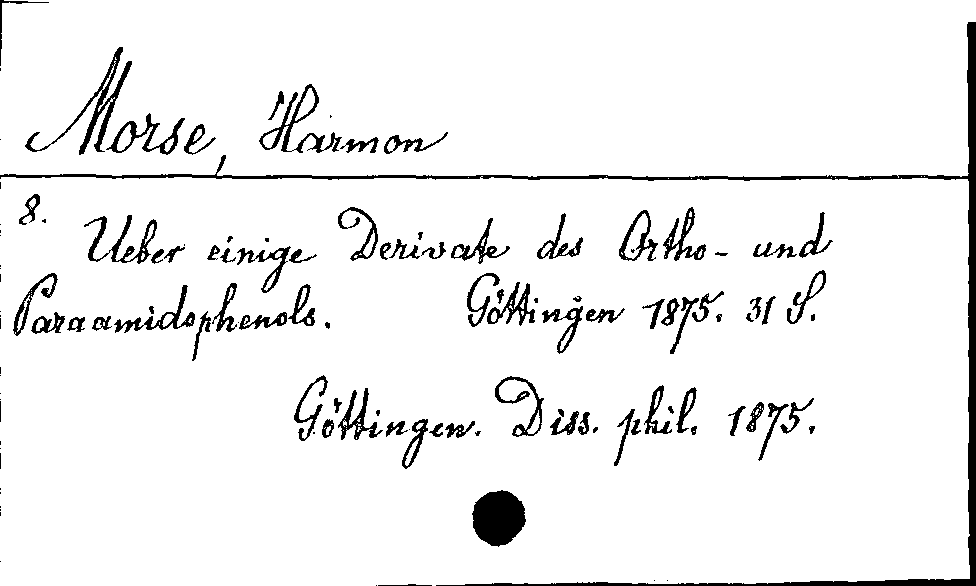 Morse, Harmon
8.
Ueber einige Derivate des Ortho- und
Paraamidophenols. Göttingen 1875. 31 S.
Göttingen. Diss. phil. 1875.